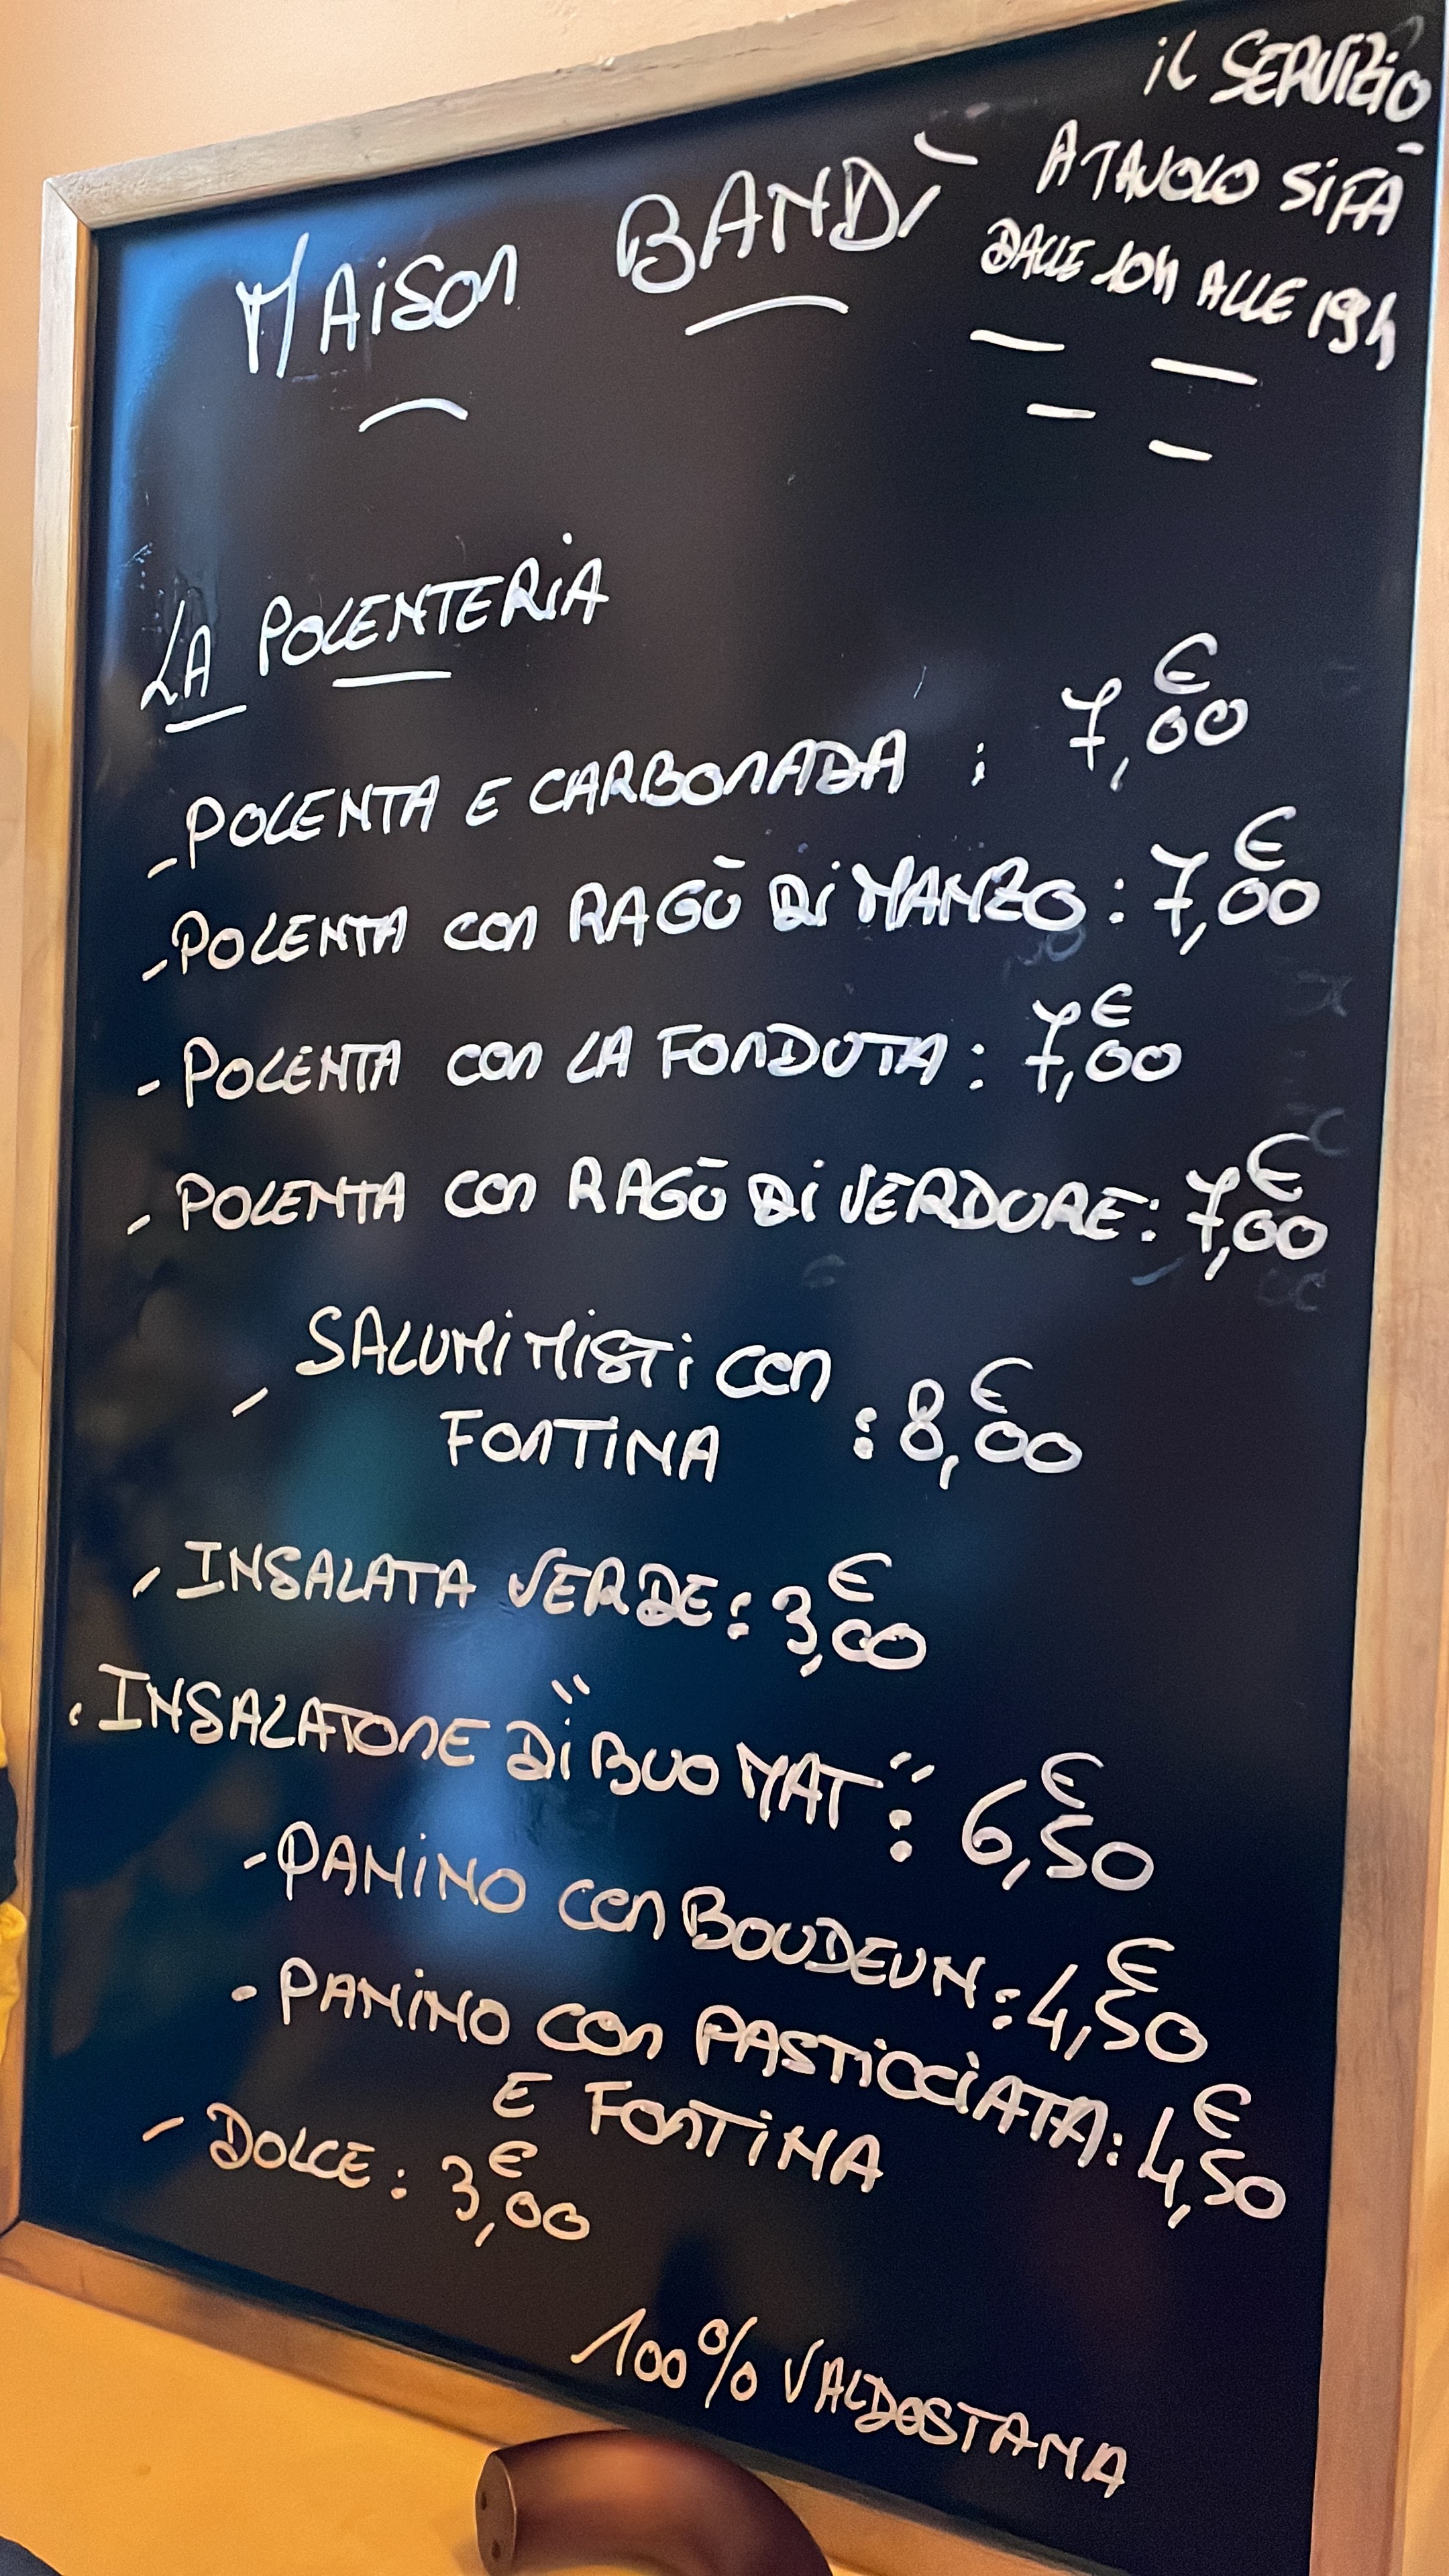 il SERVIZIO
A TAVOLO Si FÀ
DALLE 10h ALLE 19h
MAiSon BANDÌ
LA POLENTERiA
- POLENTA E CARBONADA : 7,00€
- POLENTA con RAGÙ Di MANZO : 7,00€
- POLENTA con LA FONDUTA : 7,00€
- POLENTA con RAGÙ Di VERDURE : 7,00€
- SALUMi MiSTi con
FONTiNA : 8,00€
- INSALATA VERDE : 3,00€
- INSALATONE Di "BUO MAT" : 6,50€
- PANiNO con BOUDEUN : 4,50€
- PANiNO con PASTiCCiATA : 4,50€
E FONTiNA
- DOLCE : 3,00€
100% VALDOSTANA